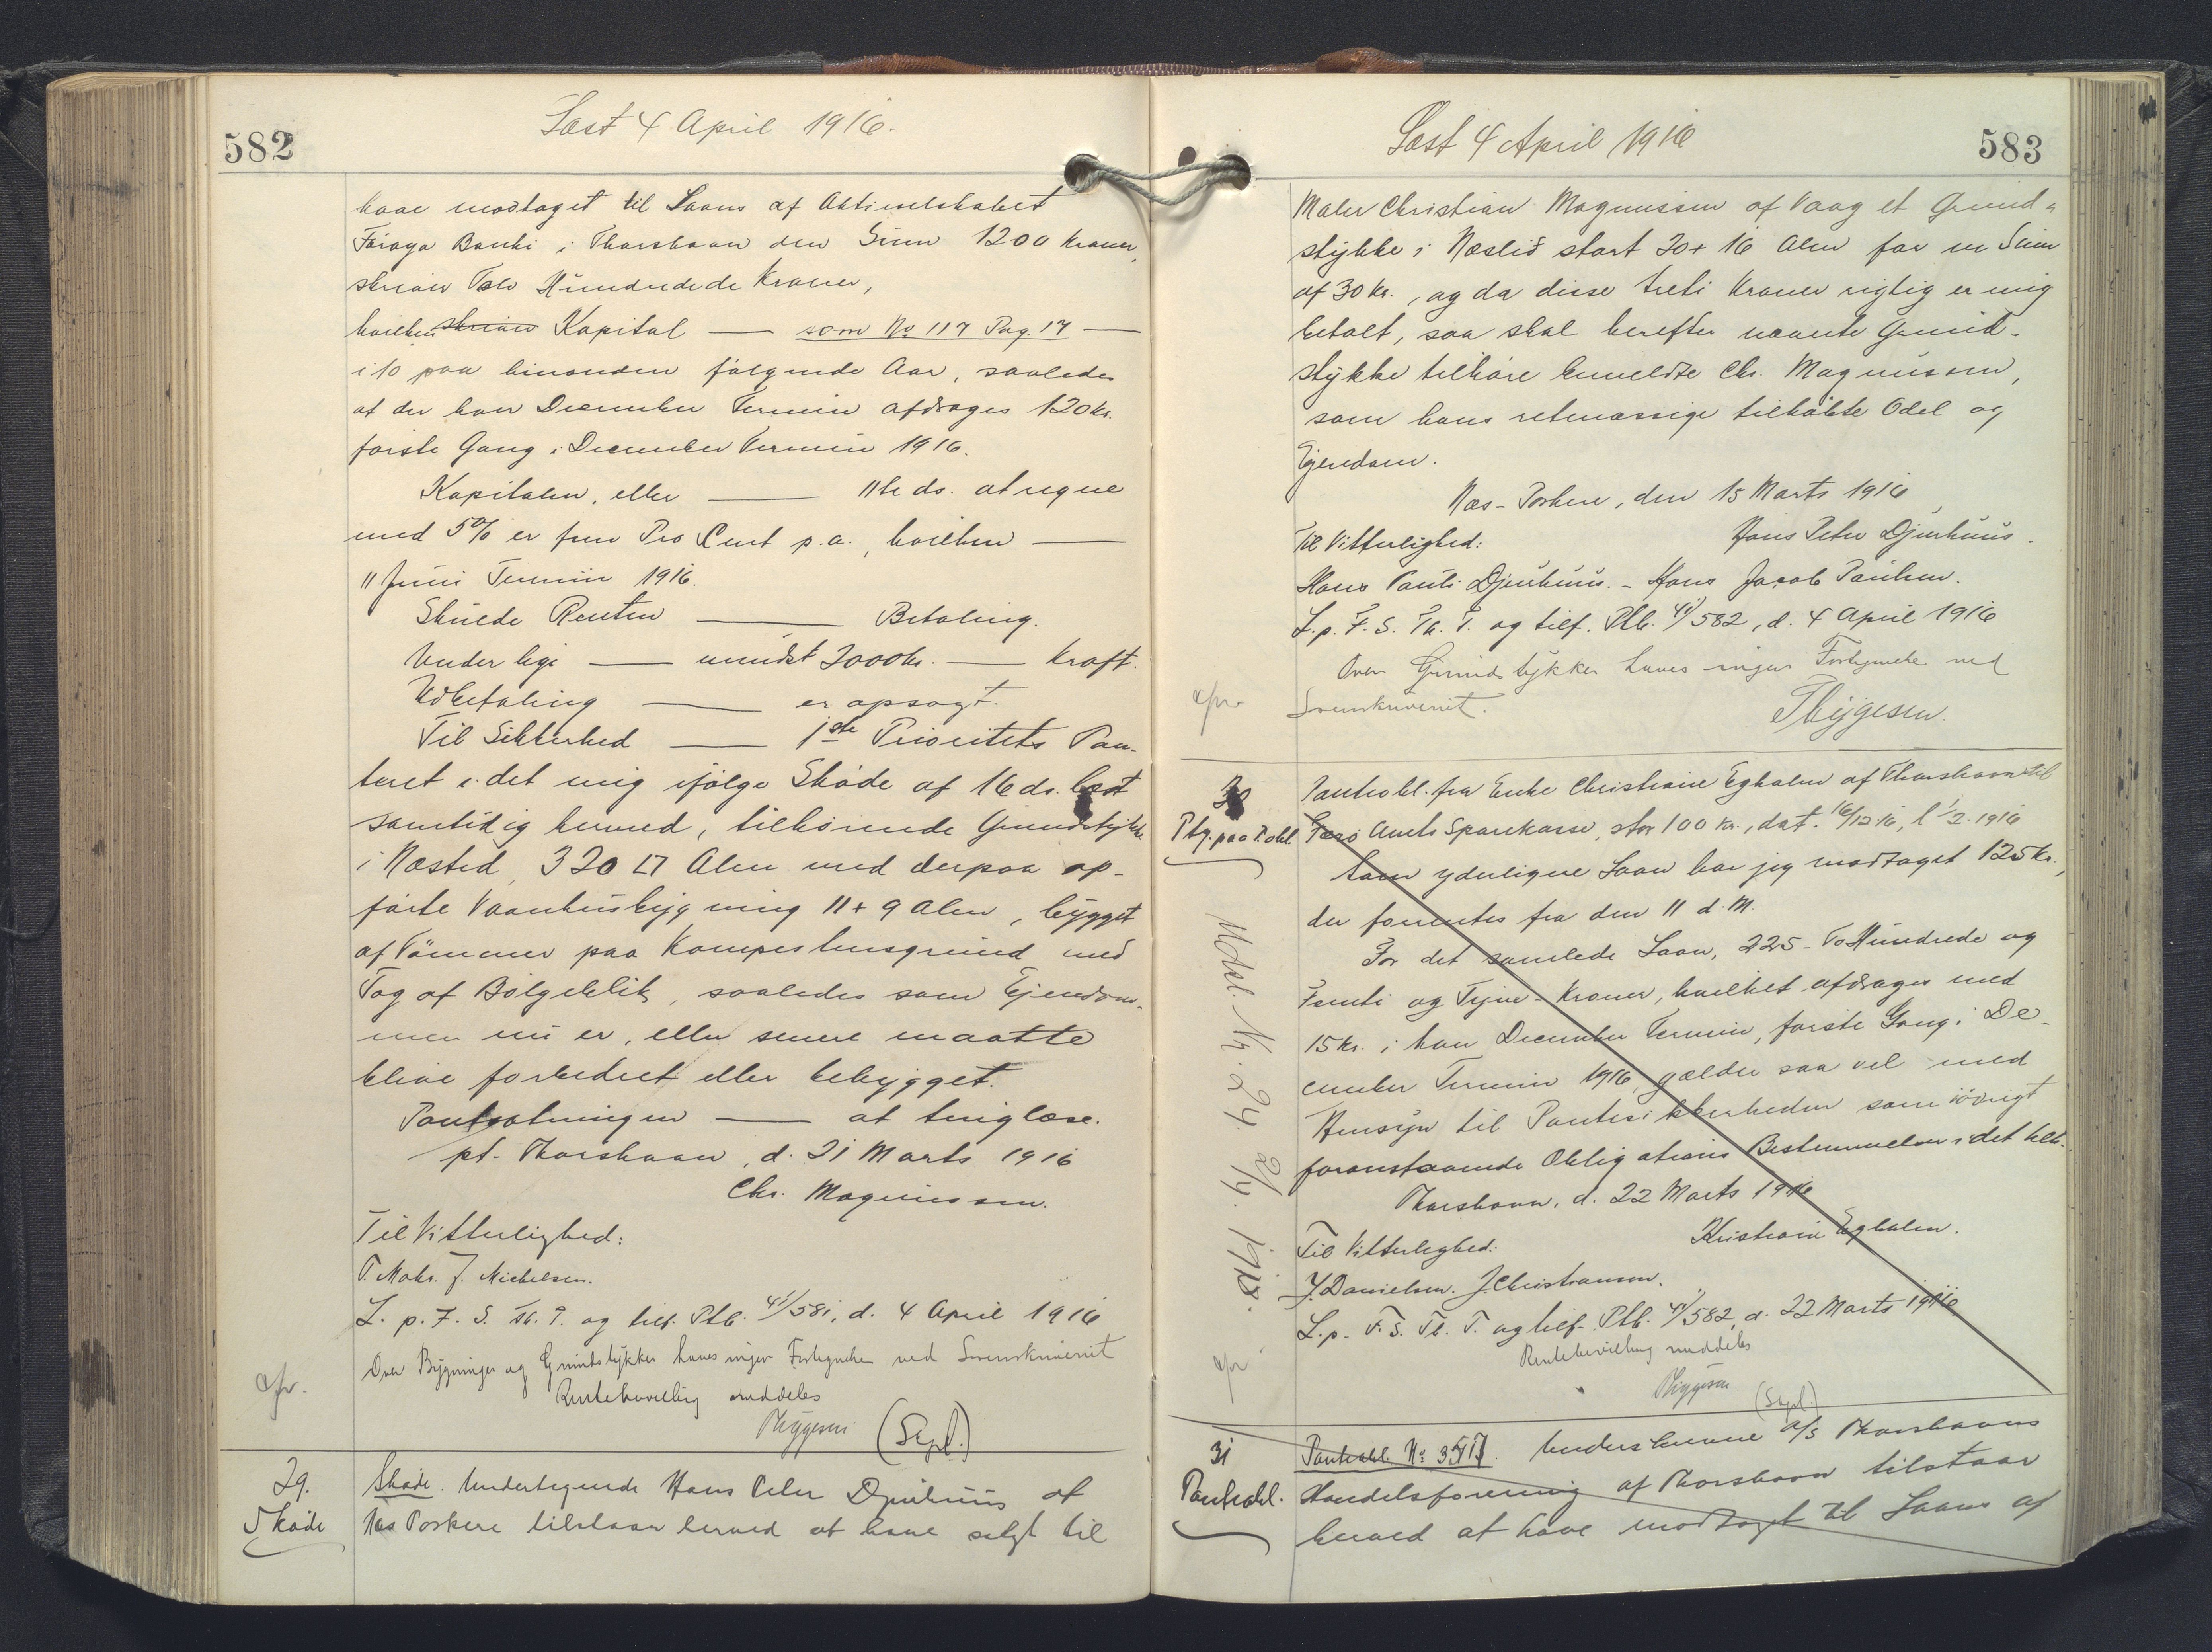 582
Læst 4 April 1916.
have modtaget til Laans af Aktieselskabet
Föroya Banki i Thorshavn den Sum 1200 Kroner,
skriver Tolv Hundredede Kroner,
hvilken skriver Kapital — som No 117 Pag. 17 —
i 10 paa hinanden følgende Aar, saaledes
at der hver December Termin afdrages 120 kr.
første Gang i December Termin 1916.
Kapitalen, eller — 11te ds. at regne
med 5% er fem Pro Cent p.a., hvilken —
11 Juni Termin 1916.
Skulde Renten — Betaling.
Under lige — mindst 2000 kr. — Kraft.
Udbetaling — er opsagt.
Til Sikkerhed — 1ste Prioritets Pan-
teret i det mig ifølge Skøde af 16 ds. læst
samtidig hermed, tilhørende Grundstykke
i Næsted, 320 □ Alen med derpaa op-
førte Vaanhusbygning 11 + 9 Alen, bygget
af Tømmer paa Kampestensgrund med
Tag af Bølgeblik, saaledes som Ejendom-
men nu er, eller senere maatte
blive forbedret eller bebygget.
Pantsætningen — at tinglæse.
pt. Thorshavn, d. 21 Marts 1916
Chr. Magnussen.
Til Vitterlighed:
T. Mohr. J. Michelsen.
L. p. F. S. Th. T. og tilf. Ptb. 41/581, d. 4 April 1916
Over Bygninger og Grundstykker haves ingen Fortegnelse ved Sorenskriveriet
Rentebevilling meddeles
Thygesen (Sepl.)
29.
Skøde
Skøde. Undertegnede Hans Peter Djurhuus af
Næs Porkere tilstaar herved at have solgt til
583
Læst 4 April 1916
Maler Christian Magnussen af Vaag et Grund-
stykke i Næslid stort 20 + 16 Alen for en Sum
af 30 kr., og da disse treti Kroner rigtig er mig
betalt, saa skal herefter nævnte Grund-
stykke tilhøre bemeldte Chr. Magnussen,
som hans retmæssige tilkøbte Odel og
Ejendom.
Næs-Porkere, den 15 Marts 1916
Til Vitterlighed: Hans Peter Djurhuus.
Hans Pauli Djurhuus. - Hans Jacob Poulsen.
L. p. F. S. Th. T. og tilf. Ptb. 41/582, d. 4 April 1916
Over Grundstykker haves ingen Fortegnelse ved
Sorenskriveriet.
Thygesen.
30
Ptg. paa P. obl.
Pantobl. fra Enke Christiane Egholm af Thorshavn til
Færø Amts Sparekasse, stor 100 kr., dat. 16/12 16, l 1/2 1916
Som yderligere Laan har jeg modtaget 125 kr.,
der forrentes fra den 11 d. M.
For det samlede Laan, 225 - To Hundrede og
Femti og Tyve - Kroner, hvilket afdrages med
15 kr. i hver December Termin, første Gang i De-
cember Termin 1916, gælder saa vel med
Hensyn til Pantesikkerheden som iøvrigt
foranstaaende Obligations Bestemmelser i det hele.
Thorshavn, d. 22 Marts 1916
Til Vitterlighed: Kristiane Egholm.
J. Danielsen. J. Christiansen.
L. p. F. S. Th. T. og tilf. Ptb. 41/582, d. 22 Marts 1916
Rentebevilling meddeles
Thygesen
(Sepl)
Udsl. Nr. 24 1918.
31
Pantobl.
Pantobl. No 3517. Underskrevne A/S Thorshavns
Handelsforening af Thorshavn tilstaar
herved at have modtaget til Laans af